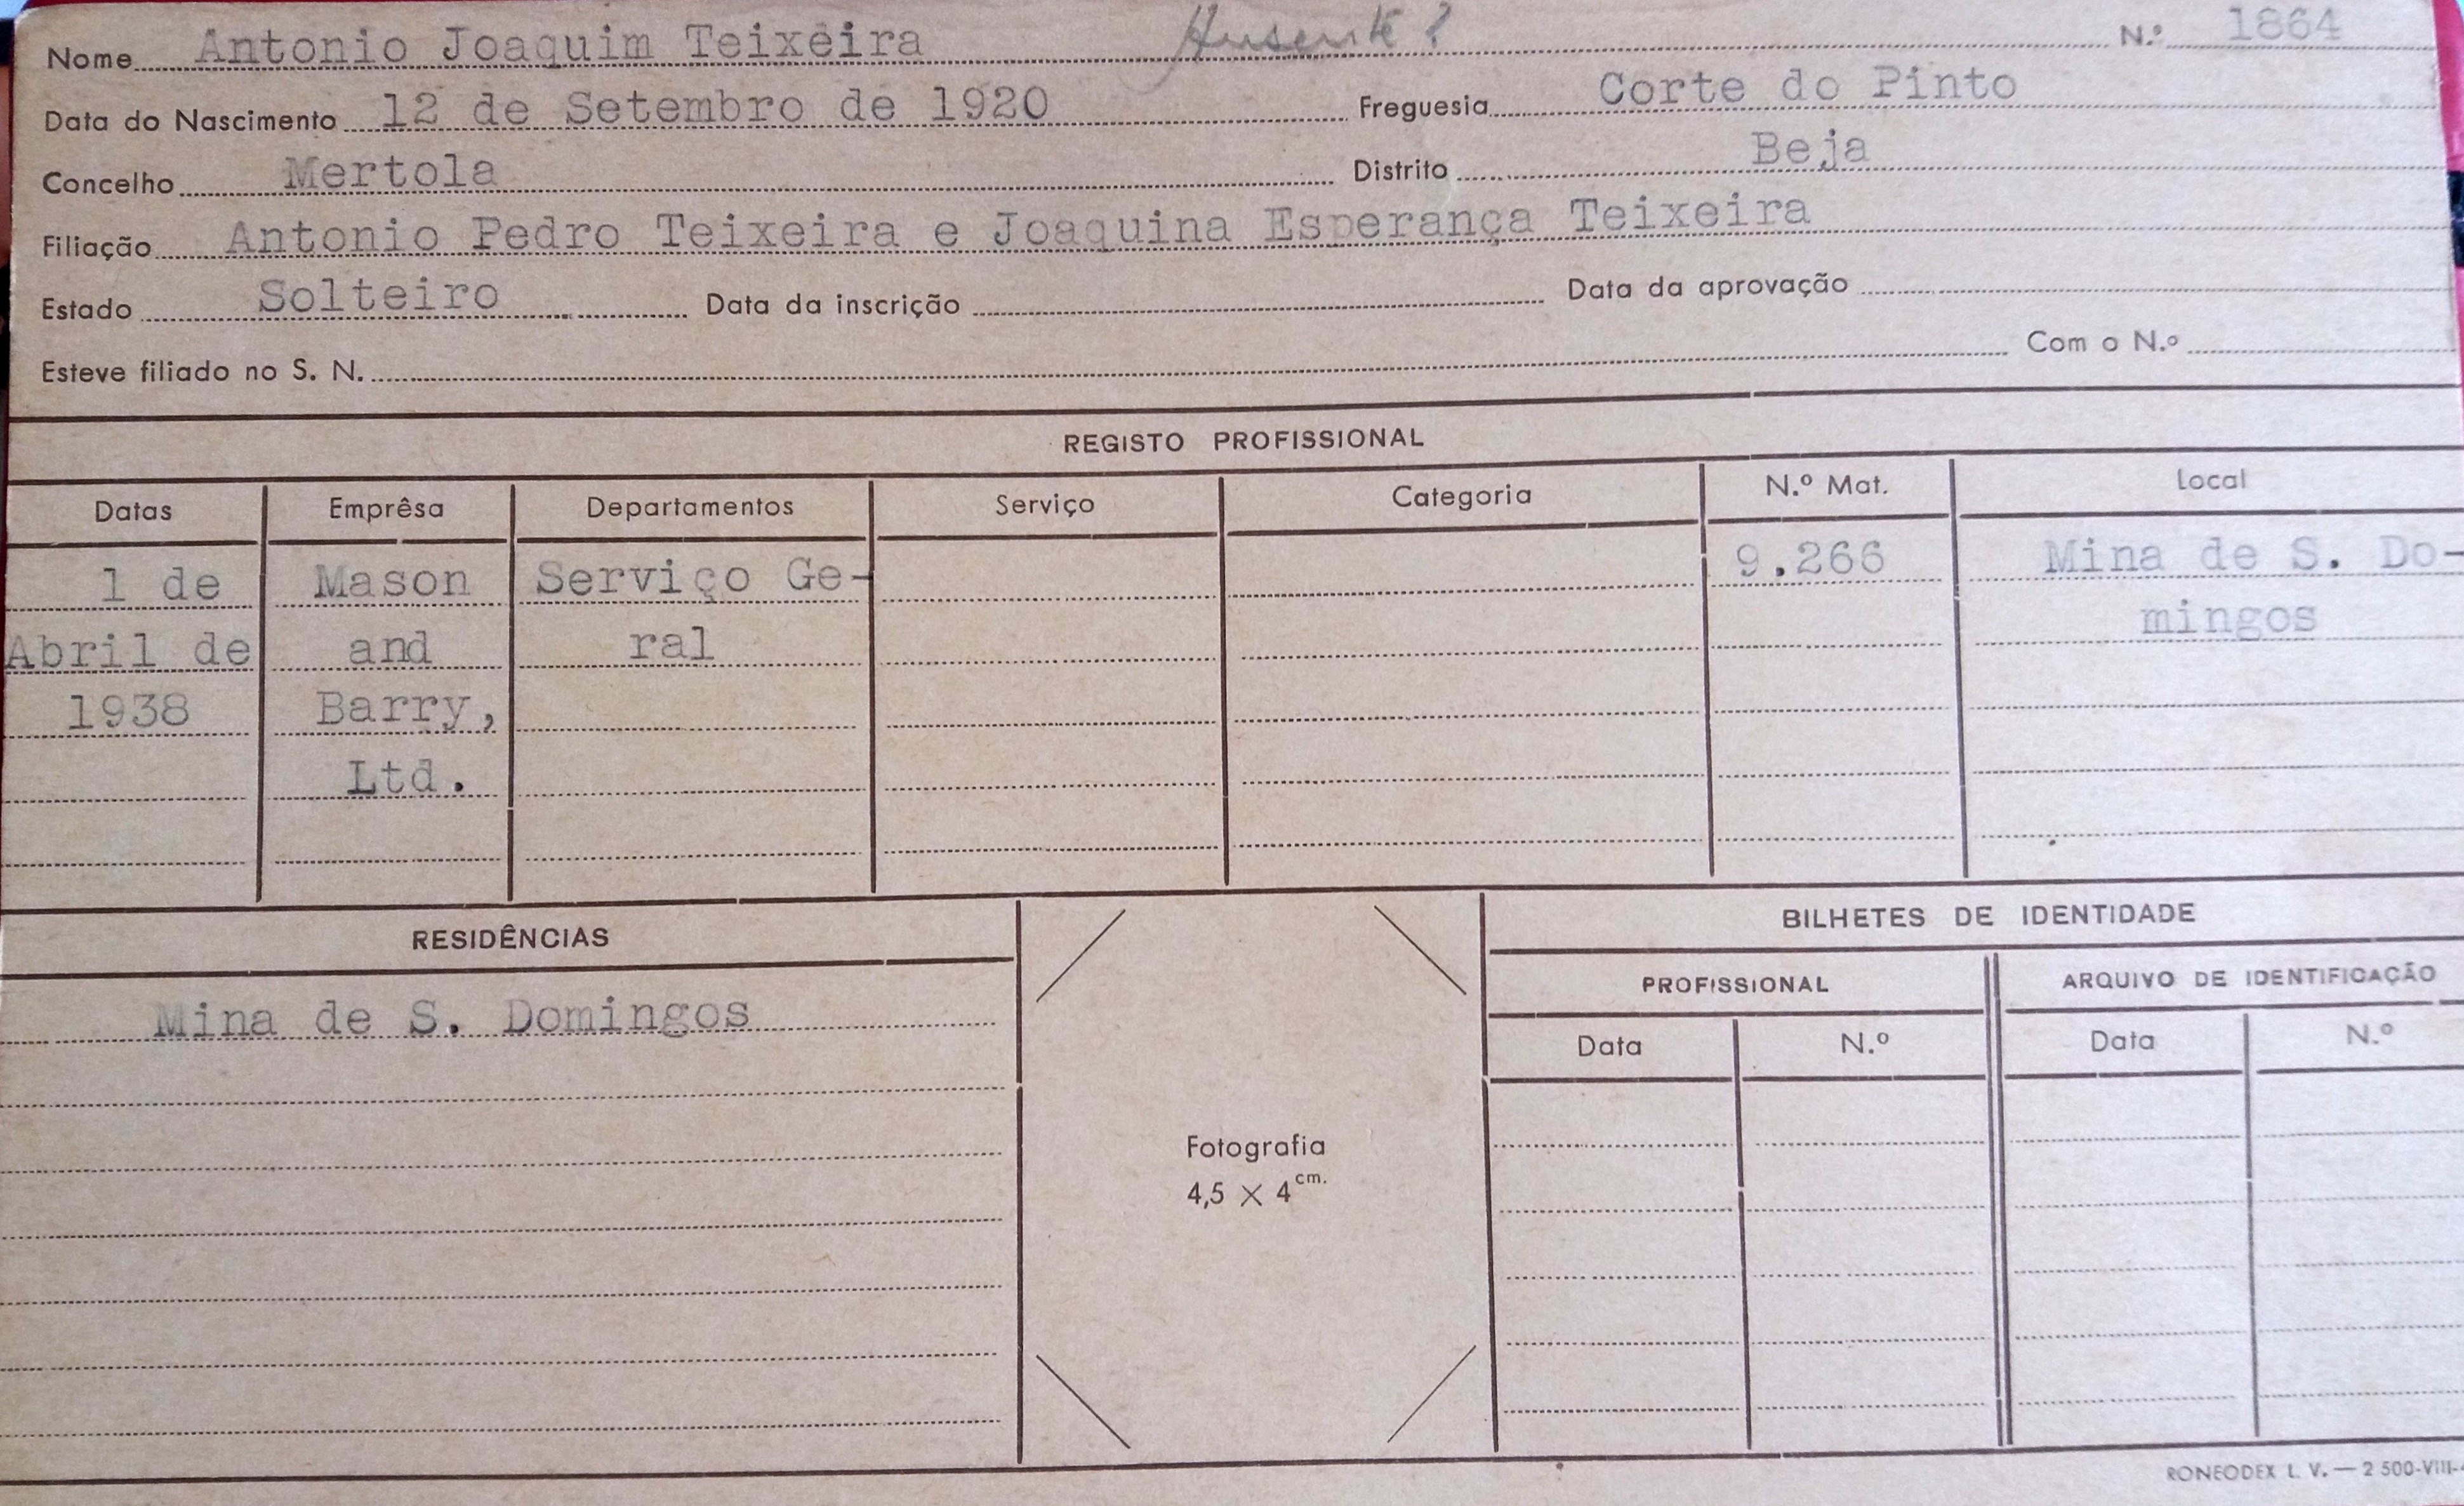 Nome Antonio Joaquim Teixeira Ausente? N.º 1864
Data do Nascimento 12 de Setembro de 1920 Freguesia Corte do Pinto
Concelho Mertola Distrito Beja
Filiação Antonio Pedro Teixeira e Joaquina Esperança Teixeira
Estado Solteiro Data da inscrição Data da aprovação
Esteve filiado no S. N. Com o N.º
REGISTO PROFISSIONAL
Datas Emprêsa Departamentos Serviço Categoria N.º Mat. Local
1 de Mason Serviço Ge- 9.266 Mina de S. Do-
Abril de and ral mingos
1938 Barry,
Ltd.
RESIDÊNCIAS
Mina de S. Domingos
Fotografia
4,5 × 4 cm.
BILHETES DE IDENTIDADE
PROFISSIONAL ARQUIVO DE IDENTIFICAÇÃO
Data N.º Data N.º
RONEODEX L. V. — 2 500-VIII-